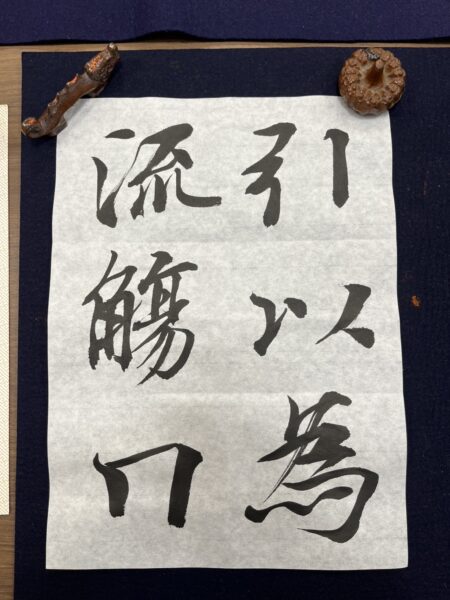 引以為
流觴